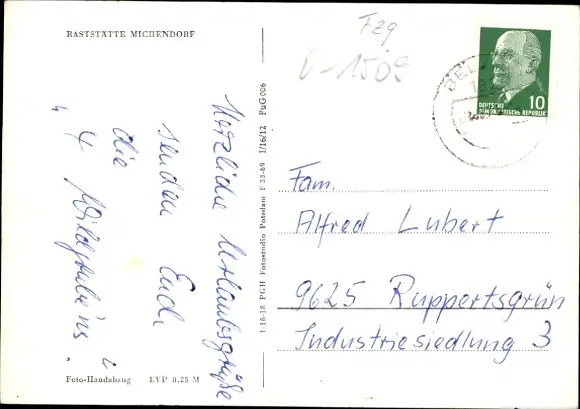 RASTSTÄTTE MICHENDORF
Herzliche Urlaubsgrüße
senden Euch
die
"4 Wildgrubens"
Foto-Handabzug EVP 0,25 M
1-16-18 PGH Fotostudio Potsdam F 33-69 I/16/12 FuG006
Fzg
0-1509
BEL
10
DEUTSCHE
DEMOKRATISCHE REPUBLIK
Fam.
Alfred Lubert
9625 Ruppertsgrün
Industriesiedlung 3